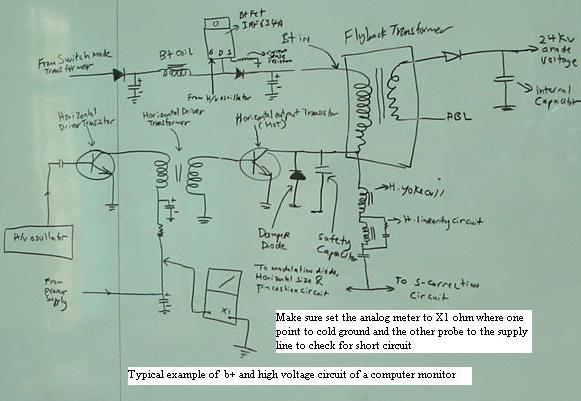 B+ Fet
IRF634A
Flyback Transformer
24KV
anode
voltage
From Switch mode
Transformer
B+ Coil
G D S
current
sense
resistor
B+ in
From H/v oscillator
internal
Capacitor
Horizontal
Driver Transistor
Horizontal Driver
Transformer
Horizontal output Transistor
(HOT)
ABL
H-yoke coil
H-linearity circuit
H/v oscillator
Damper
Diode
Safety
Capacitor
From
power
supply
X1
To modulation diode,
Horizontal size &
Pincushion circuit
To S-correction
Circuit
Make sure set the analog meter to X1 ohm where one
point to cold ground and the other probe to the supply
line to check for short circuit
Typical example of b+ and high voltage circuit of a computer monitor